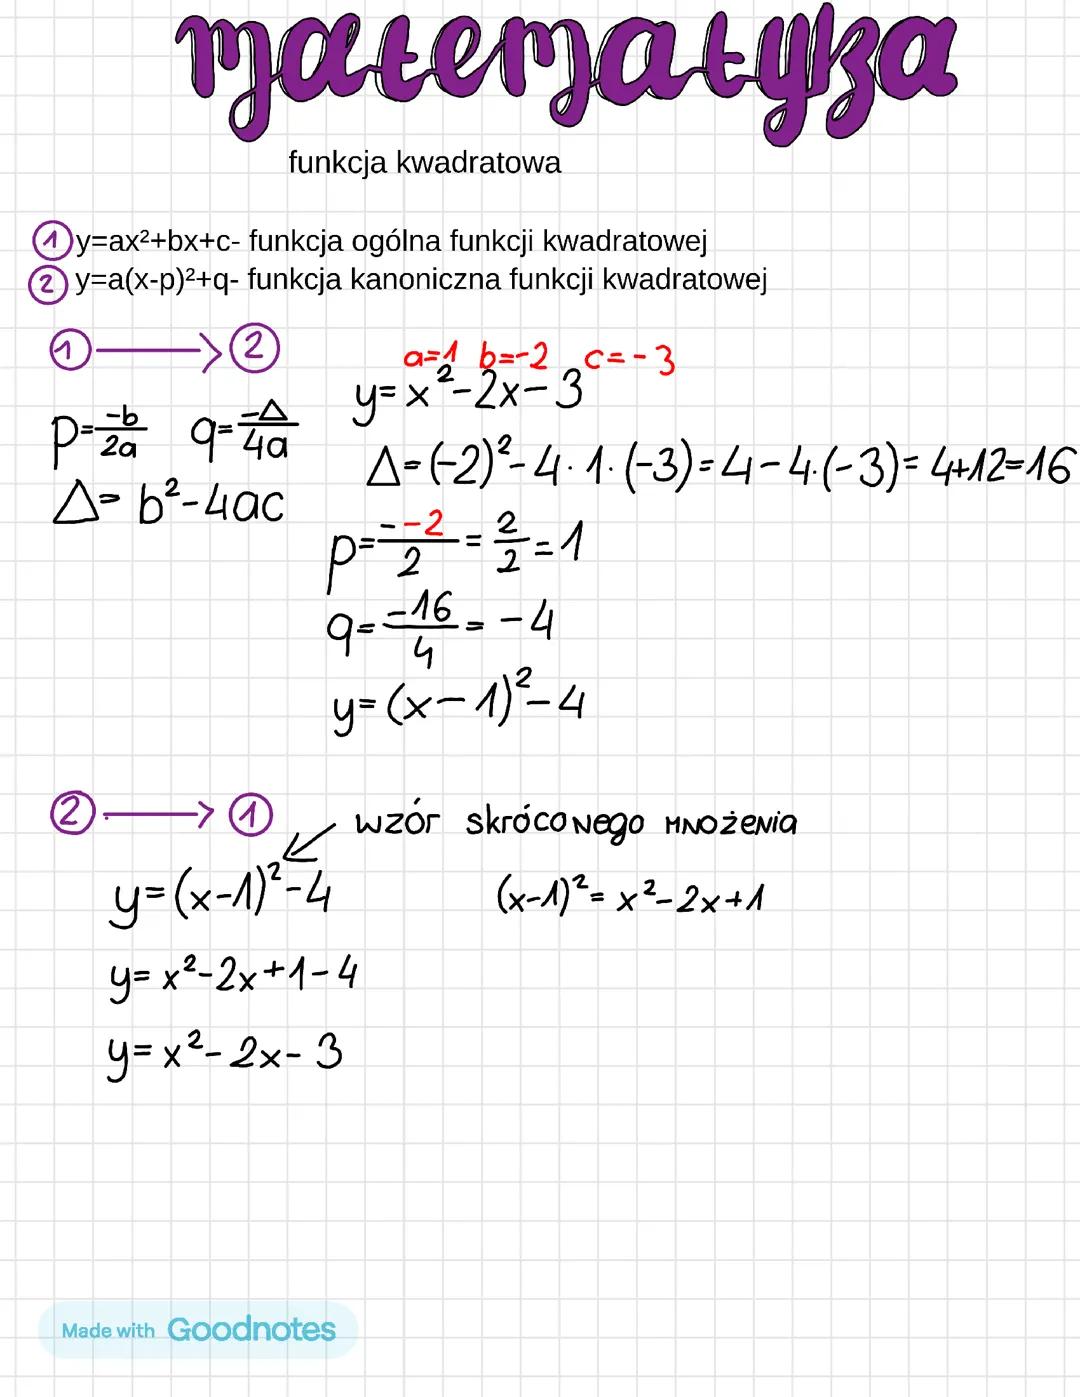 matematyka
funkcja kwadratowa
① y=ax²+bx+c- funkcja ogólna funkcji kwadratowej
② y=a(x-p)²+q- funkcja kanoniczna funkcji kwadratowej
① → ②
a=1 b=-2 c=-3
y=x²-2x-3
p=-b/2a q=-Δ/4a
Δ=b²-4ac
Δ=(-2)²-4·1·(-3)=4-4·(-3)=4+12=16
p=--2/2=2/2=1
q=-16/4=-4
y=(x-1)²-4
② → ①
wzór skróconego mnożenia
y=(x-1)²-4
(x-1)²=x²-2x+1
y=x²-2x+1-4
y=x²-2x-3
Made with Goodnotes